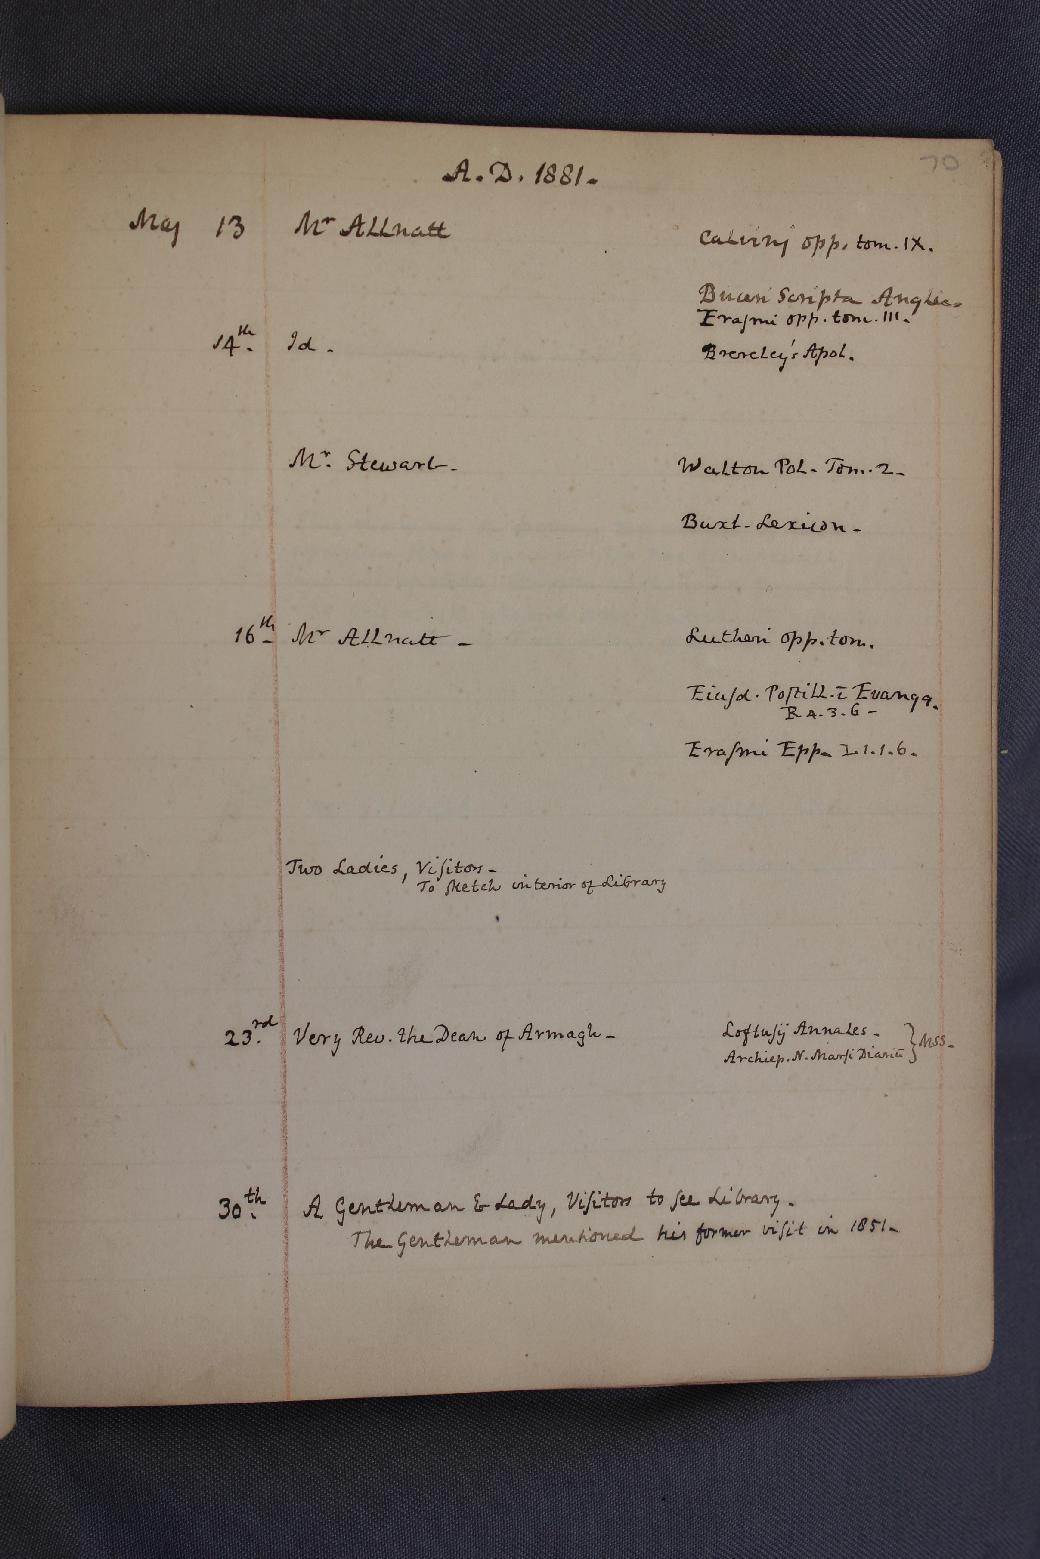 70
A. D. 1881.
May 13 Mr Allnatt Calvinj opp. tom. IX.
Buceri Scripta Anglic.
Erasmi opp. tom. III.
14th. Id. Brereley's Apol.
Mr. Stewart. Walton Pol. Tom. 2.
Buxt. Lexicon.
16th Mr Allnatt Lutheri opp. tom.
Eiusd. Postill. ī Evangg.
R 4. 3. 6
Erasmi Epp. L 1. 1. 6.
Two Ladies, Visitors.
To sketch interior of Library
23rd. Very Rev. the Dean of Armagh Loftusij Annales. } MSS.
Archiep. N. Marsi Diariū
30th. A Gentleman & Lady, Visitors to see Library.
The Gentleman mentioned his former visit in 1851.